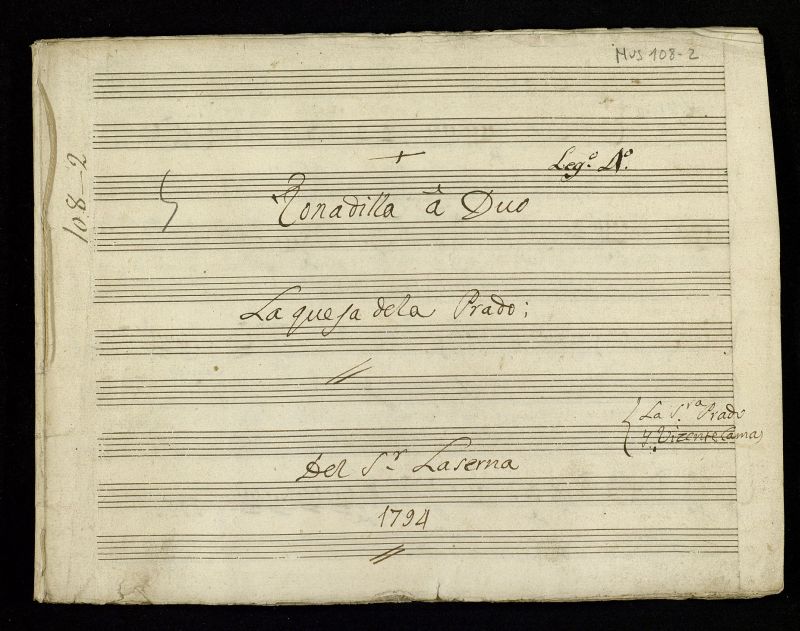 MUS 108-2
108-2
Leg.º 4º.
Tonadilla â Duo
La queja dela Prado;
La S.ra Prado
y Vizente Camas
Del S.r Laserna
1794